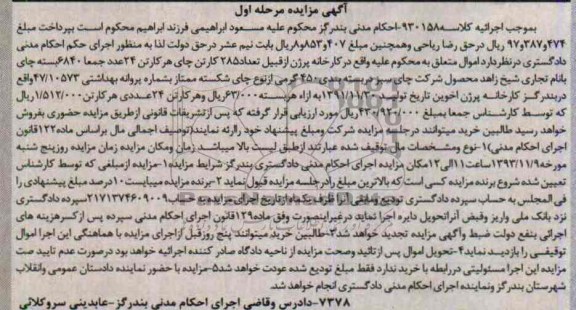 آگهی مزایده مرحله اول
بموجب اجرائیه کلاسه۹۳۰۱۵۸-احکام مدنی بندرگز محکوم علیه مسعود ابراهیمی فرزند ابراهیم محکوم است بپرداخت مبلغ
۹۷٫۳۸۷٫۴۷۴ ریال درحق رضا ریاحی وهمچنین مبلغ ۸٫۸۵۳٫۴۰۷ریال بابت نیم عشر درحق دولت لذا به منظور اجرای حکم احکام مدنی
دادگستری درنظردارد اموال متعلق به محکوم علیه واقع درکارخانه پرژن ازقبیل تعداد۲۸۵ کارتن چای هر کارتن ۲۴عدد جمعا ۶۸۴۰بسته چای
بانام تجاری شیخ زاهد محصول شرکت چای سبز بسته بندی۴۵۰ گرمی ازنوع چای شکسته ممتاز بشماره پروانه بهداشتی ۴۷/۱۰۵۷۳واقع
دربندرگز کارخانه پرژن آخوین تاریخ تولید ۱۳۹۱/۱۱/۳۰به ازاء هربسته۶۳/۰۰۰ریال وهر کارتن ۲۴عددی هرکارتن۱/۵۱۲/۰۰۰ ریال
که توسط کارشناس جمعا بمبلغ ۴۳۰/۹۲۰/۰۰۰ریال مورد ارزیابی قرار گرفته که پس ازتشریفات قانونی ازطریق مزایده حضوری بفروش
خواهد رسید طالبین خرید میتوانند درجلسه مزایده شرکت ومبلغ پیشنهاد خود راارئه نمایند(توصیف اجمالی مال براساس ماده۱۲۲قانون
اجرای احکام مدنی)۱-نوع ومشخصات مال توقیف شده عبارتند ازطبق لیست بالا میباشد زمان ومکان مزایده زمان مزایده روزپنج شنبه
مورخه۱۳۹۳/۱۱/۹ساعت۱۱الی۱۲مکان مزایده اجرای احکام مدنی دادگستری بندرگز شرایط مزایده۱-مزایده ازمبلغی که توسط کارشناس
تعیین شده شروع برنده مزایده کسی است که بالاترین مبلغ رادرجلسه مزایده قبول نماید ۲-برنده مزایده میبایست۱۰درصد مبلغ پیشنهادی را
فی المجلس به حساب سپرده دادگستری تودیع ومابقی را ظرف یکماه از تاریخ اجرای مزایده به حساب۲۱۷۱۳۷۴۶۰۹۰۰۹سپرده دادگستری
نزد بانک ملی واریز وقبض آنراتحویل دایره اجرا نماید درغیراینصورت وفق ماده۱۲۹قانون اجرای احکام مدنی سپرده پس از کسرهزینه های
اجرائی بنفع دولت ضبط وآگهی مزایده تجدید خواهد شد۳-طالبین خرید میتوانند پنج روزقبل ازاجرای مزایده با هماهنگی این اجرا اموال
توقیفی را بازدید نماید۴-تحویل اموال پس از تائید وصحت مزایده از ناحیه دادگاه صادر کننده اجرائیه خواهد بود درصورت عدم تایید صحت
مزایده این اجرا مسئولیتی دررابطه با خرید ندارد فقط مبلغ تودیع شده عودت خواهد شد۵-مزایده با حضور نماینده دادستان عمومی وانقلاب
شهرستان بندرگز ونماینده اجرای احکام مدنی دادگستری انجام خواهد شد.
۷۳۷۸-دادرس وقاضی اجرای احکام مدنی بندرگز-عابدینی سروکلائی